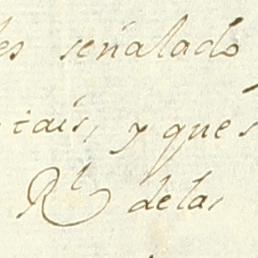 es señalado
tais, y que s
R.l de las